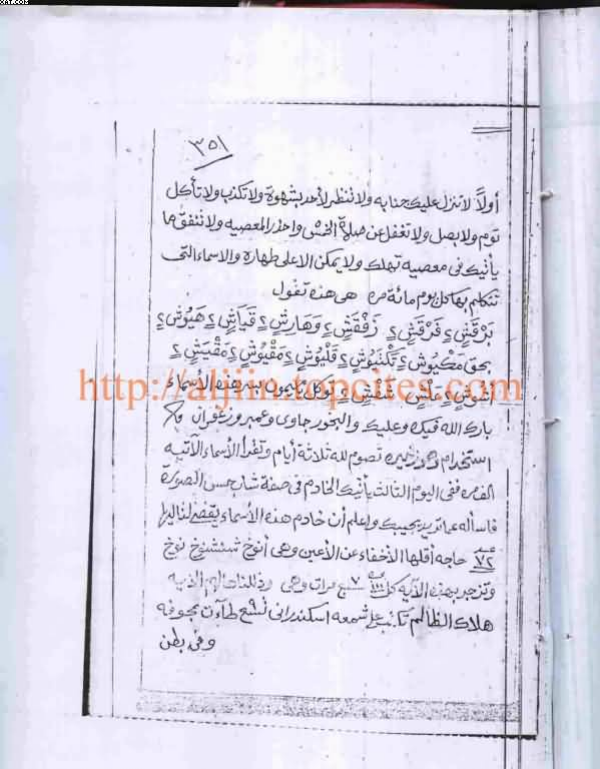 ٣٥١
أولاً لا تنزل عليك جنابه ولا تنظر لأحد بشهوة ولا تكذب ولا تأكل
توم ولا بصل ولا تغفل عن صلاة الخمس واحذر المعصيه ولا تنفق مما
يأتيك في معصيه تهلك ولا يمكن الا على طهاره والاسماء التى
تتكلم بها كل يوم مائة مره هى هذه تقول
بَرْقَشٍ ٢ فَرْقَشٍ ٢ زَفْقَشٍ ٢ وَهَارِشٍ ٢ قَيَاشٍ ٢ هَيُوشٍ ٢
بحق مَكْيُوشٍ ٢ تَكْنَيُوشٍ ٢ قَلْيُوشٍ ٢ مَقْيُوشٍ ٢ مَقْيَشٍ ٢
http://aljiin.topcites.com
توكل يا ميمون بسر هذه الأسماء
بارك الله فيك وعليك والبخور جاوى وعمبر وزعفران
استخدام تصوم لله ثلاثة أيام وتقرأ الأسماء الآتيه
الف مره ففى اليوم الثالث يأتيك الخادم في صفة شاب حسن الصورة
فاسأله عما تريد يجيبك واعلم أن خادم هذه الأسماء يقضى لتاليها
٧٢ حاجه أقلها الأخفاء عن الأعين وهى أنوخ شنشنوخ نوخ
وتزجر بهذه الآيه كل ١٠٠ ٧ سبع مرات وهى
هلاك الظالم تكتب على شمعه اسكندرانى تسع طاآت مجوفه
وفى بطن